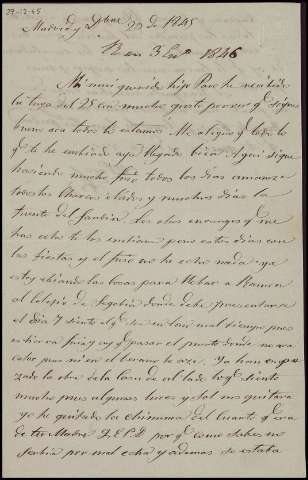 29-12-45
Madrid y Dbre 29 de 1845
R en 3 Enº 1846
Mi mui querido hijo Paco he recibido
la tuya del 25 con mucho gusto por ver q.e sigues
bueno aca todos lo estamos. Me alegro q.e todo lo
q.e te he embiado aya llegado bien. Aqui sigue
haciendo mucho frio todos los dias amanece
todos los elados y muchos dias la
fuente del Jardin. Los otros encargos q.e me
has echo te los embiare pero estos dias con
las fiestas y el frio no he echo nada ya
estoy abiando las cosas para llebar a Ramon
al Colejio de Segobia donde debe presentarse
el dia 7 siento el q.e sea en tan mal tiempo pues
es tierra fria y ay q.e pasar el puerto donde nunca
calor pues ni en el berano le aze. Ya han enpe-
zado la obra de la Casa de al lado lo q.e siento
mucho pues algunas luces y sol nos quitara
yo he quitado la chimenea del Cuarto q.e era
de tu Madre Q.E.P.D. por q.e como sabes no
serbia por mal echa y ademas de estaba